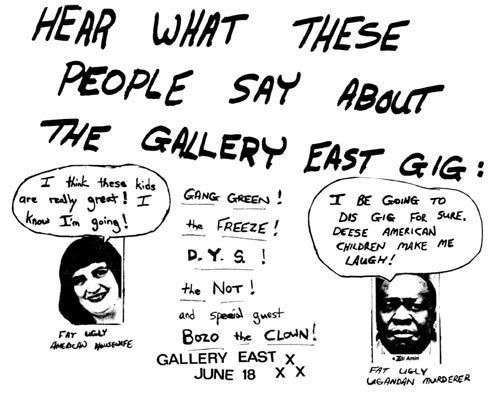 HEAR WHAT THESE
PEOPLE SAY ABOUT
THE GALLERY EAST GIG:
I think these kids
are really great! I
know I'm going!
FAT UGLY
AMERICAN HOUSEWIFE
GANG GREEN!
the FREEZE!
D.Y.S.!
the NOT!
and special guest
BOZO the CLOWN!
GALLERY EAST X
JUNE 18 X X
I BE GOING TO
DIS GIG FOR SURE.
DEESE AMERICAN
CHILDREN MAKE ME
LAUGH!
Idi Amin
FAT UGLY
UGANDAN MURDERER